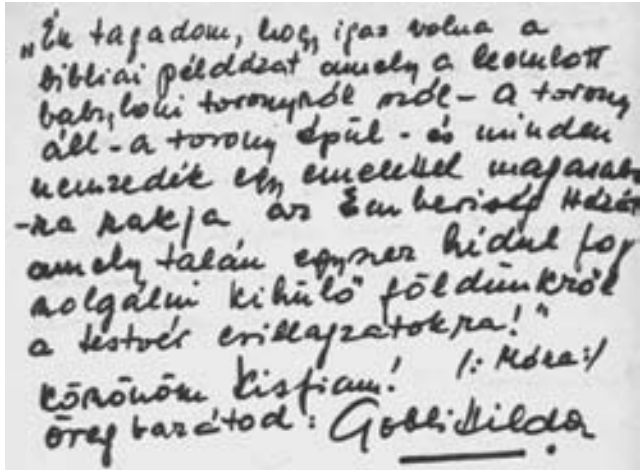 „Én tagadom, hogy igaz volna a
bibliai példázat amely a leomlott
babyloni toronyról szól – a torony
áll – a torony épül – és minden
nemzedék egy emelettel magasabb
-ra rakja az Emberiség Házát
amely talán egyszer hidul fog
szolgálni kihülő földünkről
a testvér csillagzatokra!"
/: Móra:/
Köszönöm Kisfiam!
öreg barátod: Gobbi Hilda.